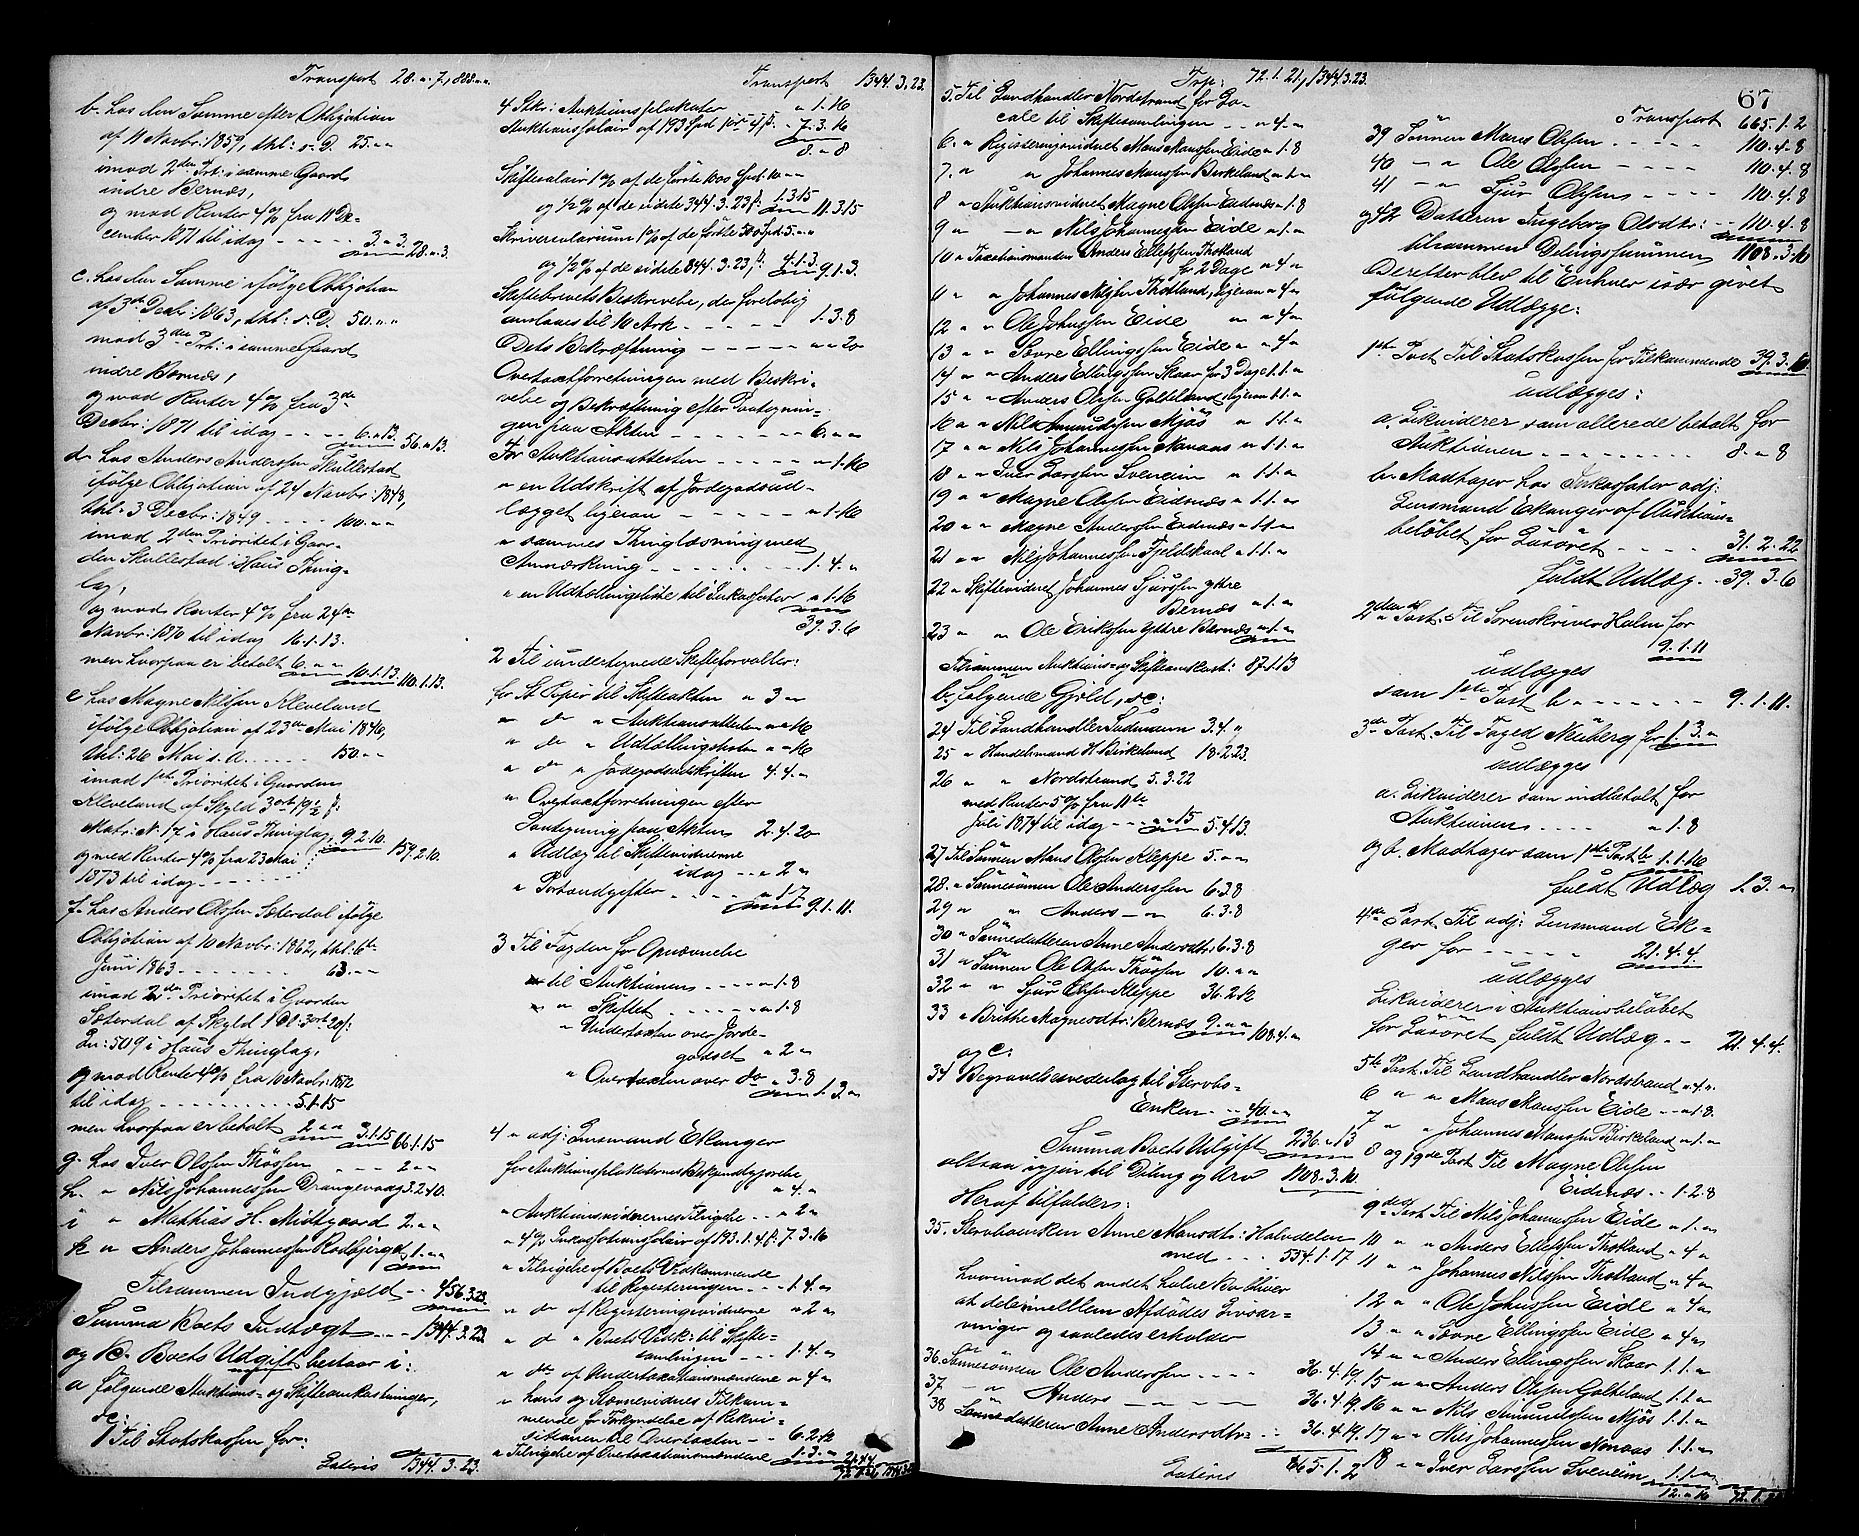 Transport 28. " 7., 888. " "
b. hos den Samme efter Obligation
af 11 Novbr: 1859, thl: s. D. 25. " "
imod 2den Prt: i samme Gaard
indre Bernæs,
og med Renter 4% fra 11 De-
cember 1871 til idag - - - - 3. " 3. 28. " 3.
c. hos den Samme ifølge Obligation
af 3die Decbr: 1863, thl: s. D. 50. " "
mod 3die Prt: i samme Gaard
indre Bernæs,
og med Renter 4% fra 3die
Decbr: 1871 til idag - - - - 6. " 13. 56. " 13.
d. hos Anders Anderssen Skullestad
ifølge Obligation af 24 Novbr: 1848,
thl: 3 Decbr: 1849 - - - - 100. " "
imod 2den Prioritet i Gaar-
den Skullestad i Haus Thing-
lag,
og med Renter 4% fra 24de
Novbr: 1870 til idag 16. 1. 13.
men hvorpaa er betalt 6. " " 10. 1. 13. 110. 1. 13.
e. hos Magne Nilsen Kleveland
ifølge Obligation af 23de Mai 1846,
thl: 26 Mai s. A. - - - - 150. " "
imod 1ste Prioritet i Gaarden
Kleveland af Skyld 3 ort 19½ ß:
Matr: N. 17 i Haus Thinglag
og med Renter 4% fra 23 Mai 9. 2. 10. 159. 2. 10.
1873 til idag - - - -
f. hos Anders Olsen Sæterdal ifølge
Obligation af 10 Novbr: 1862, thl: 6te
Juni 1863 - - - - 63. " "
imod 2den Prioritet i Gaarden
Sæterdal af Skyld 1 Dl: 3 ort 20 ß:
Ln: 509 i Haus Thinglag,
og med Renter 4% fra 10 Novbr: 1872
til idag - - - - 5. 1. 15
men hvorpaa er betalt 2. " " 3. 1. 15 66. 1. 15
g. hos Iver Olsen Thossen - - - 2. " "
h. " Nils Johannessen Drangevaag 3. 2. 10.
i " Mathias H. Midtgaard 2. " "
k " Anders Johannessen Rødbjerget 1. " "
Tilsammen Indgjæld - - 456. 3. 23.
Summa Boets Indtægt - - - 1344. 3. 23.
og B. Boets Udgift bestaar i:
a følgende Auktions- og Skifteomkostninger,
sc:
1 Til Statskassen for:
Lateris 1344. 3. 23.
Transport 1344. 3. 23.
4 Stkr: Auktionsplakater " 1. 16
Auktionssalair af 193 Spd 1 ort 4 ß. - 7. 3. 16
8. " 8
Skiftesalair 1% af de første 1000 Spd. 10. " "
og ½% af de sidste 344. 3. 23 ß: 1. 3. 15 11. 3. 15
Skriversalarium 1% af de første 500 Spd. 5. " "
og ½% af de sidste 844. 3. 23 ß: 4. 1. 3. 9. 1. 3.
Skiftebrevets Beskrivelse, der foreløbig
anslaaes til 10 Ark - - - - 1. 3. 8
Dets Bekræftning - - - - " " 20
Overtaxtforretningen med Beskri-
velse og Bekræftning efter Paategnin-
gen paa Akten - - - - 6. " "
For Auktionsattesten - - - - " 1. 16
" en Udskrift af Jordegodsud-
lægget ligesaa - - - - " 1. 16
" sammes Thinglæsning med
Anmærkning - - - - 1. 4. "
" en Udtællingsliste til Inkassator " 1. 16
39. 3. 6
2 Til undertegnede Skifteforvalter:
for St. Papir til Skifteakten " 3 "
" do " Auktionsattesten " " 16
" do " Udtællingslisten " " 16
" do " Jordegodsudskriften 4. 4. "
" Overtaxtforretningen efter
Paategning paa Akten 2. 4. 20
" Udlæg til Skiftevidnerne
idag - - " 2 "
" Portoudgifter - - - - " 17 9. 1. 11.
3 Til Fogden for Opnævnelse
til Auktionen - - - - " 1. 8
" Skiftet - - - - " 1. 8
" Undertaxten over Jorde-
godset " 2 "
" Overtaxten over do " 3. 8 1. 3. "
4 " adj: Lensmand Ekanger
for Auktionsplakaternes Bekjendtgjørelse
" 4. "
" Auktionsvidnernes Tilsigelse - - " 2 "
" 4% Inkassationssalair af 193. 1. 4 ß. 7. 3. 16
" Tilsigelse af Boets Vedkommende
til Registreringen - - - 1. 4. "
" do af Registreringsvidnerne " 2 "
" do " Boets Vedk: til Skifte-
samlingen - - - 1. 4. "
" do af Undertaxationsmændene " 4 "
" hans og Stevnevidnes Tilkom-
mende for Forkyndelse af Rekvi-
sitionen til Overtaxten - - 6. 2. 12
" Tilsigelse af Overtaxationsmændene 1. 3. " 21. 4. 4.
Trsp: 72. 1. 21., 1344. 3. 23.
67
5. Til Landhandler Nordstrand for Lo-
cale til Skiftesamlingen - - " 4. "
6. " Registreringsvidnet Mans Mansen Eide " 1. 8
7. " " Johannes Mansen Birkeland " 1. "
8 " Auktionsvidnet Magne Olsen Eidnæs " 1. 8
9 " " Nils Johannessen Eide " 1. "
10 " Taxationsmanden Anders Ellefsen Thotland
for 2 Dage " 4 "
11 " " Johannes Nilssen Thotland, ligesaa " 4 "
12 " " Ole Johnssen Eide " " 4 "
13 " " Sjovre Ellingssen Eide " " 4 "
14 " " Anders Ellingssen Skaar for 3 Dage 1. 1. "
15 " " Anders Olsen Galteland ligesaa 1. 1. "
16 " " Nils Amundssen Mjøs " 1. 1. "
17 " " Nils Johannessen Nonaas " 1. 1. "
18 " " Iver Larssen Sveneim " 1. 1. "
19 " " Magne Olsen Eidnæs " 1. 1. "
20 " " Magne Anderssen Eidnæs " 1. 1. "
21 " " Nils Johannessen Fjeldskaal " 1. 1. "
22 " Skiftevidnet Johannes Sjurssen yttre
Bernæs " 1. "
23 " " Ole Erikssen yttre Bernæs " 1. "
Tilsammen Auktions- og Skifteomkost: 87. 1. 13
b. følgende Gjæld, sc:
24 Til Landhandler Tudmann 3. 4. "
25 " Handelsmand H. Birkeland 18. 2. 23.
26 " " Nordstrand 5. 3. 22
med Renter 5% fra 11te
Juli 1874 til idag - - " " 15 5. 4. 13.
27 Til Sønnen Mans Olsen Kleppe 5. " "
28. " Sønnesønnen Ole Anderssen 6. 3. 8
29 " " Anders - " 6. 3. 8
30 " Sønnedatteren Anne Andersdtr: 6. 3. 8
31 " Sønnen Ole Olsen Thøssen 10. " "
32 " " Sjur Olsen Kleppe 36. 2. 12
33 " Brithe Magnesdtr: Bernæs 9. " " 108. 4. "
og c:
34 Begravelsesvederlag til Stervbo-
Enken - - - 40. " "
Summa Boets Udgift 236. " 13
altsaa igjen til Deling og Arv 1108. 3. 10.
Heraf tilfalder:
35. Stervboenken Anne Mansdtr: Halvdelen
med - - - 554. 1. 17
hvorimod det andet halve Bo bliver
at dele imellem Afdødes Livsar-
vinger og saaledes erholder
36. Sønnesønnen Ole Anderssen - - - - 36. 4. 19.
37 - " Anders - - - - 36. 4. 19.
38 Sønnedatteren Anne Andersdtr: - - 36. 4. 19.
Lateris 665. 1. 2
Transport 665. 1. 2
39 Sønnen Mans Olssen - - - - 110. 4. 8
40 - " Ole Olssen - - - - 110. 4. 8
41 - " Sjur Olssen - - - - 110. 4. 8
og 42 Datteren Ingeborg Olsdtr: - - 110. 4. 8
tilsammen Delingssummen 1108. 3. 10
Derefter blev til Enhver især givet
følgende Udlægge:
1ste Post. Til Statskassen for Tilkommende 39. 3. 6
udlægges:
a. Likviderer som allerede betalt for
Auktionen - - - - 8. " 8
b. Modtager hos Inkassator adj:
Lensmand Ekanger af Auktions-
beløbet for Løsøret - - - - 31. 2. 22
fuldt Udlæg - - 39. 3. 6
2den Post. Til Sorenskriver Holm for
9. 1. 11
udlægges
som 1ste Post b - - - - 9. 1. 11.
3die Post. Til Foged Neuberg for 1. 3. "
udlægges
a. Likviderer som indbetalt for
Auktionen - - - - " 1. 8
og b. Modtager som 1ste Post b 1. 1. 16
fuldt Udlæg 1. 3. "
4de Post. Til adj: Lensmand Ek-
ger for - - - - 21. 4. 4.
udlægges
Likviderer i Auktionsbeløbet
for Løsøret fuldt Udlæg - - 21. 4. 4.
5te Post. Til Landhandler Nordstrand " 4 ".
6 " " Mans Mansen Eide - - " 1. 8.
7 " " Johannes Mansen Birkeland " 1. "
8 og 19de Post Til Magne Olsen
Eidnæs - - 1. 2. 8
9de Post Til Nils Johannessen Eide " 1. "
10 " " Anders Ellefsen Thotland " 4 "
11 " " Johannes Nilssen Thotland " 4 "
12 " " Ole Johnssen Eide " 4 "
13 " " Sjovre Ellingssen Eide " 4 "
14 " " Anders Ellingssen Skaar 1. 1. "
15 " " Anders Olsen Galteland 1. 1. "
16 " " Nils Amundssen Mjøs 1. 1. "
17 " " Nils Johannessen Nonaas 1. 1. "
18 " " Iver Larssen Sveneim 1. 1. "
12. " 16 72. 1.